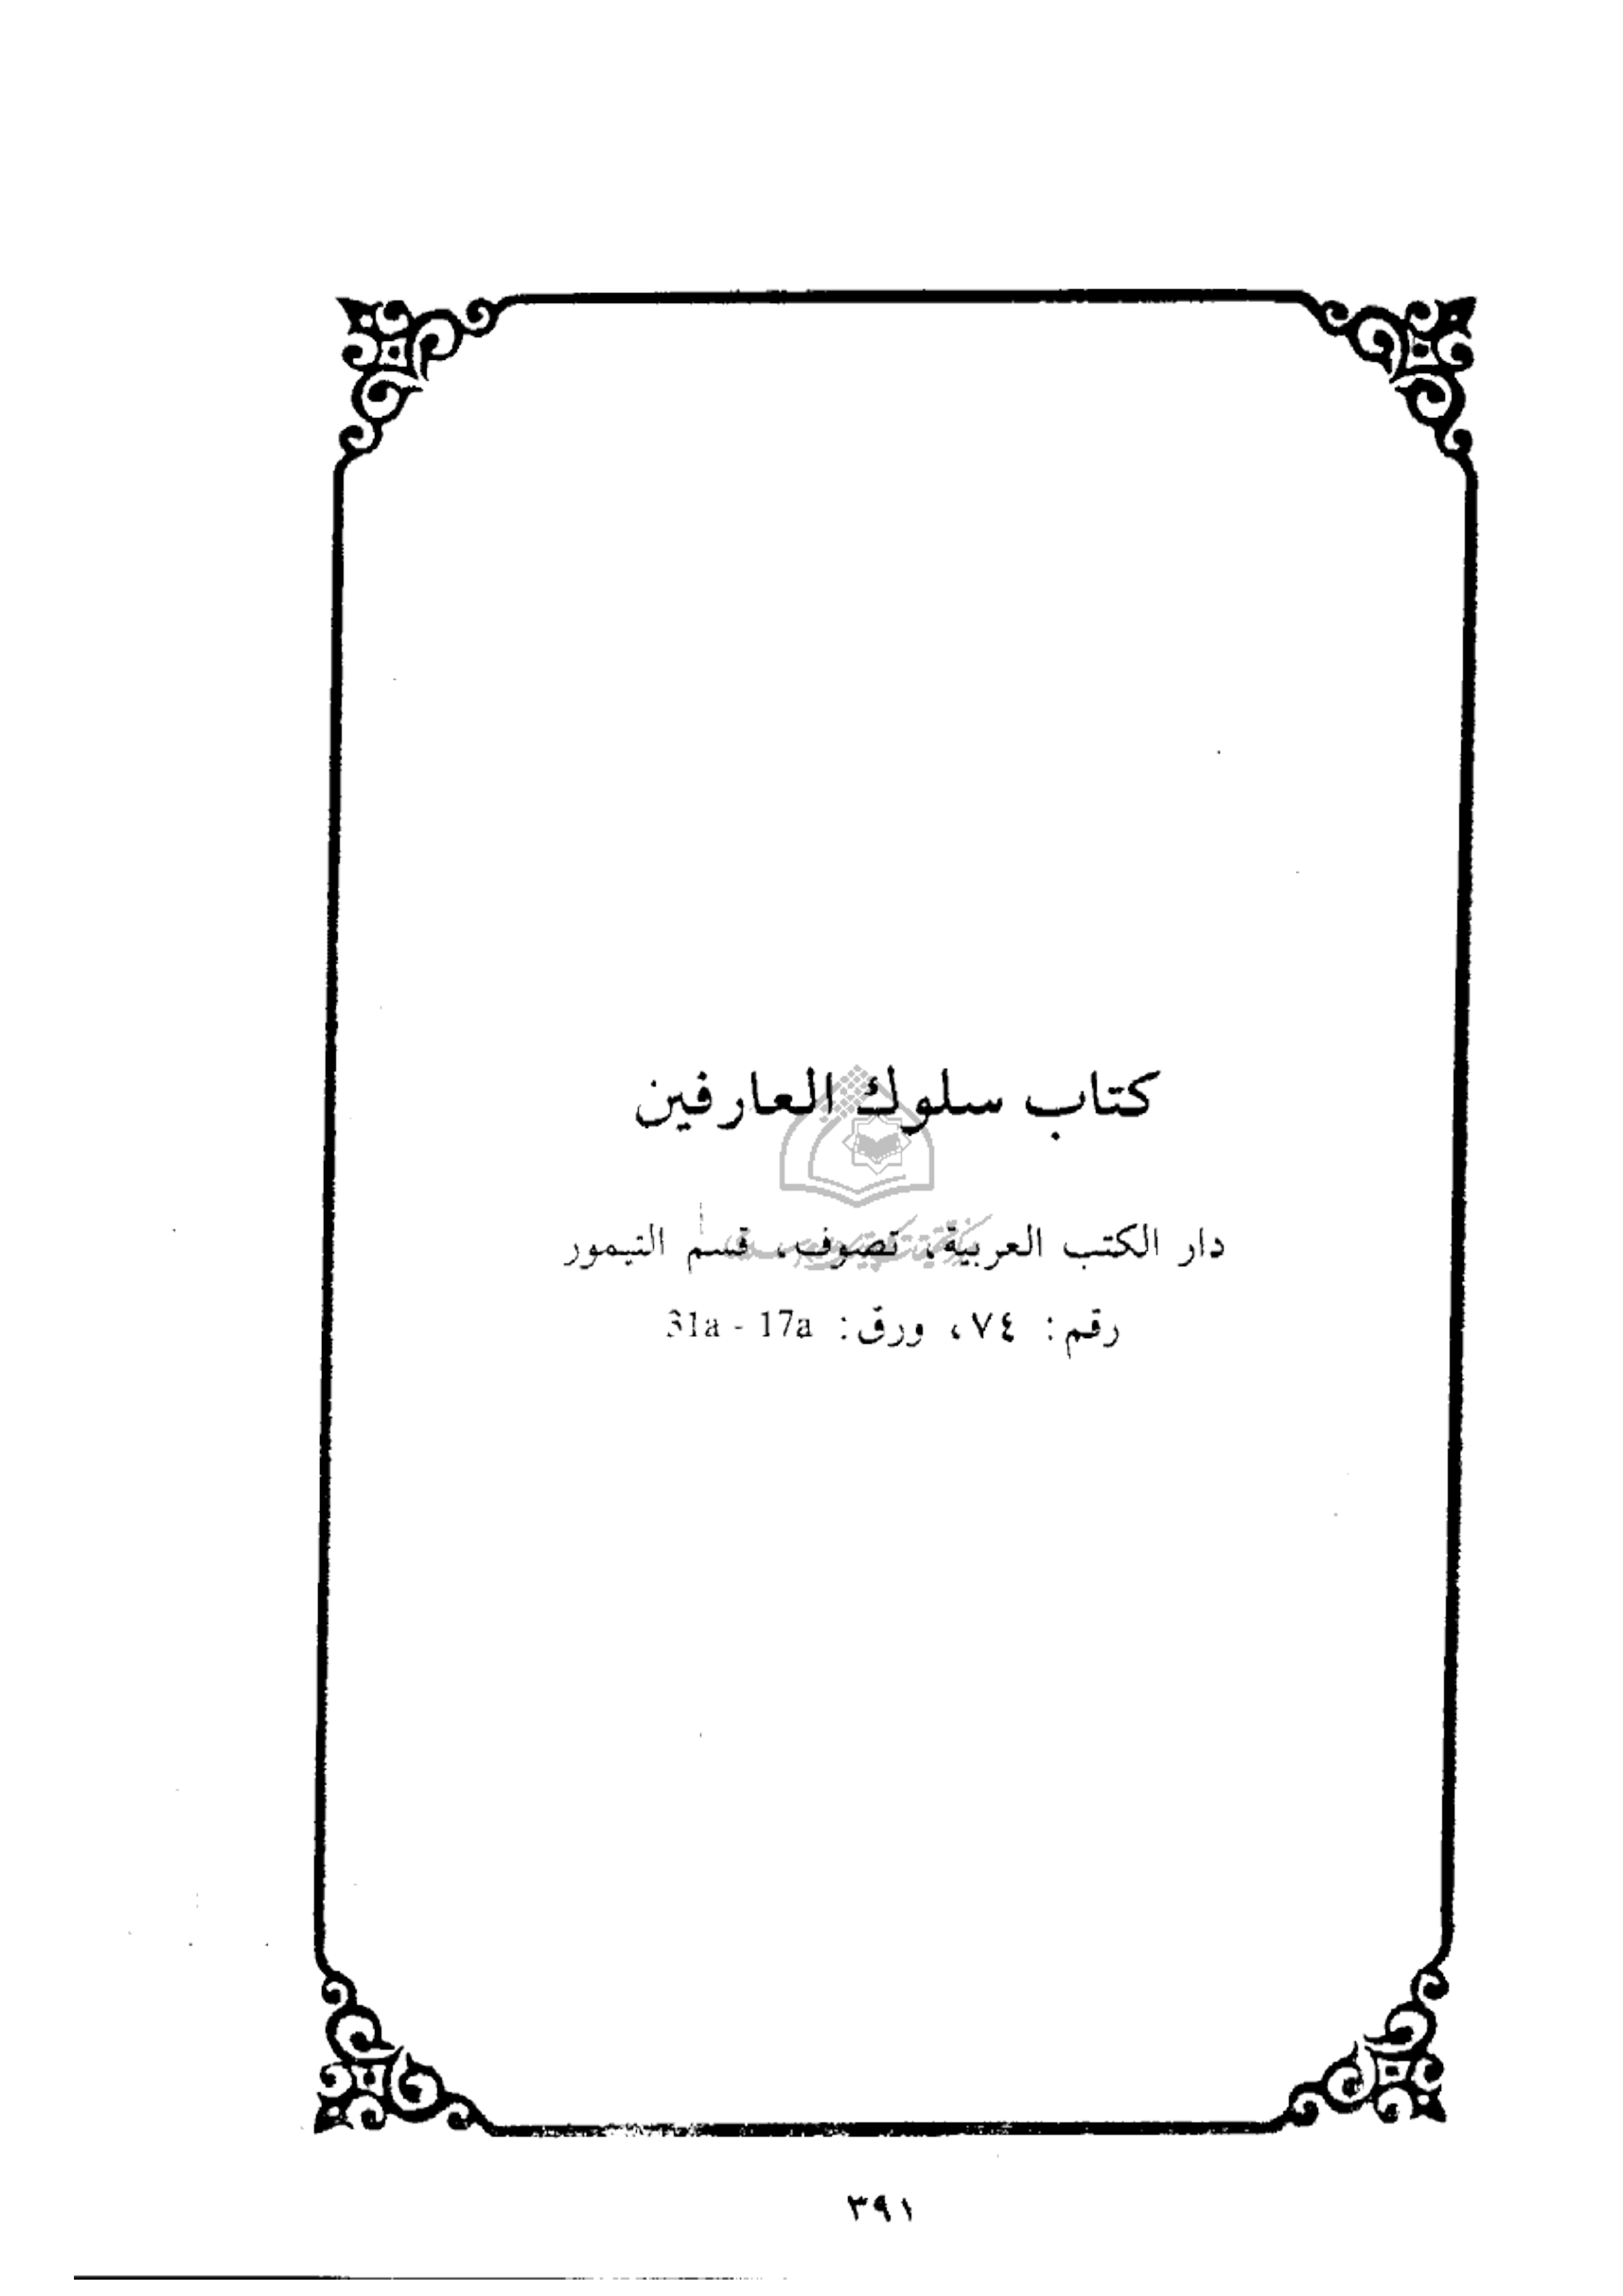 كتاب سلوك العارفين
دار الكتب العربية، تصوف، قسم التيمور
رقم: ٧٤، ورق: 31a - 17a
٣٩١